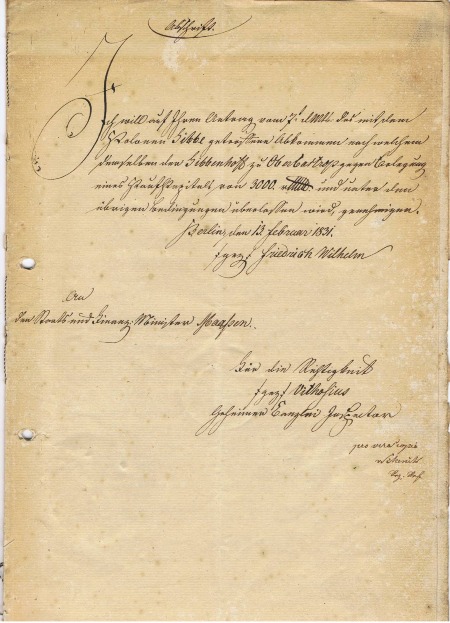 Abschrift.
Ich will auf Ihren Antrag vom 7. d. Mts. das mit dem
Kolonen Kibbe getroffene Abkommen nach welchem
demselben den Kibbenhoff zu Ober gegen Erlegung
eines Kaufkapitals von 3000 und unter den
übrigen Bedingungen überlassen wird, genehmigen.
Berlin, den 13. Februar 1831.
gez. Friedrich Wilhelm
An
den Staats und Finanz-Minister Maassen.
Für die Richtigkeit
gez. Vithosius
Geheimer Canzlei Inspector
pro vera copia